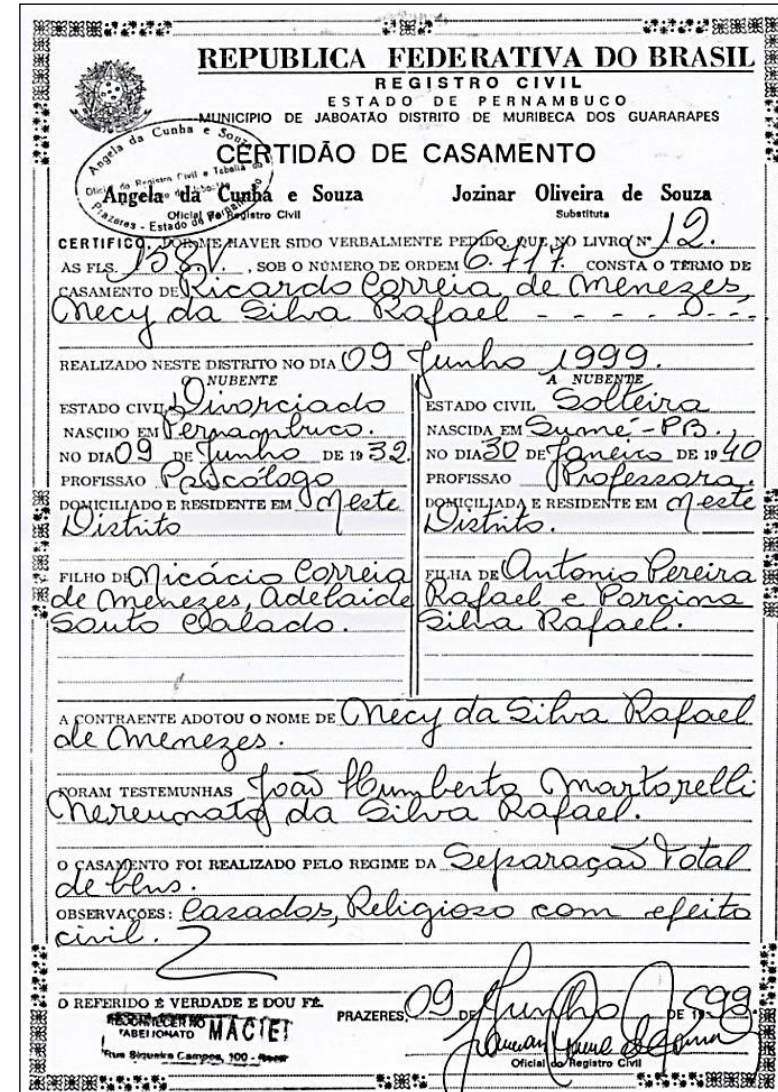 REPUBLICA FEDERATIVA DO BRASIL
REGISTRO CIVIL
ESTADO DE PERNAMBUCO
MUNICIPIO DE JABOATÃO DISTRITO DE MURIBECA DOS GUARARAPES
CERTIDÃO DE CASAMENTO
Angela da Cunha e Souza
Oficial do Registro Civil e Tabeliã
Prazeres - Estado de
Angela da Cunha e Souza Jozinar Oliveira de Souza
Oficial do Registro Civil Substituta
CERTIFICO, POR ME HAVER SIDO VERBALMENTE PEDIDO, QUE NO LIVRO Nº 12.
AS FLS. 158V. , SOB O NÚMERO DE ORDEM 6.717. CONSTA O TERMO DE
CASAMENTO DE Ricardo Correia de Menezes,
Necy da Silva Rafael - - - - 0 - -
REALIZADO NESTE DISTRITO NO DIA 09 Junho 1999.
O NUBENTE
ESTADO CIVIL Divorciado
NASCIDO EM Pernambuco.
NO DIA 09 DE Junho DE 1932.
PROFISSÃO Psicólogo
DOMICILIADO E RESIDENTE EM Neste
Distrito
FILHO DE Micácio Correia
de Menezes, Adelaide
Souto Calado.
A NUBENTE
ESTADO CIVIL Solteira
NASCIDA EM Sumé-PB.,
NO DIA 30 DE Janeiro DE 1940
PROFISSÃO Professora.
DOMICILIADA E RESIDENTE EM Neste
Distrito.
FILHA DE Antonio Pereira
Rafael e Porcina
Silva Rafael.
A CONTRAENTE ADOTOU O NOME DE Necy da Silva Rafael
de Menezes.
FORAM TESTEMUNHAS João Humberto Martorelli
da Silva Rafael.
O CASAMENTO FOI REALIZADO PELO REGIME DA Separação Total
de bens.
OBSERVAÇÕES: Casados, Religioso com efeito
civil.
O REFERIDO É VERDADE E DOU FÉ.
PRAZERES, 09 DE Junho DE 1999.
RECONHECER NO
TABELIONATO MACIEL
Rua Siqueira Campos, 100 - Recife
Oficial do Registro Civil